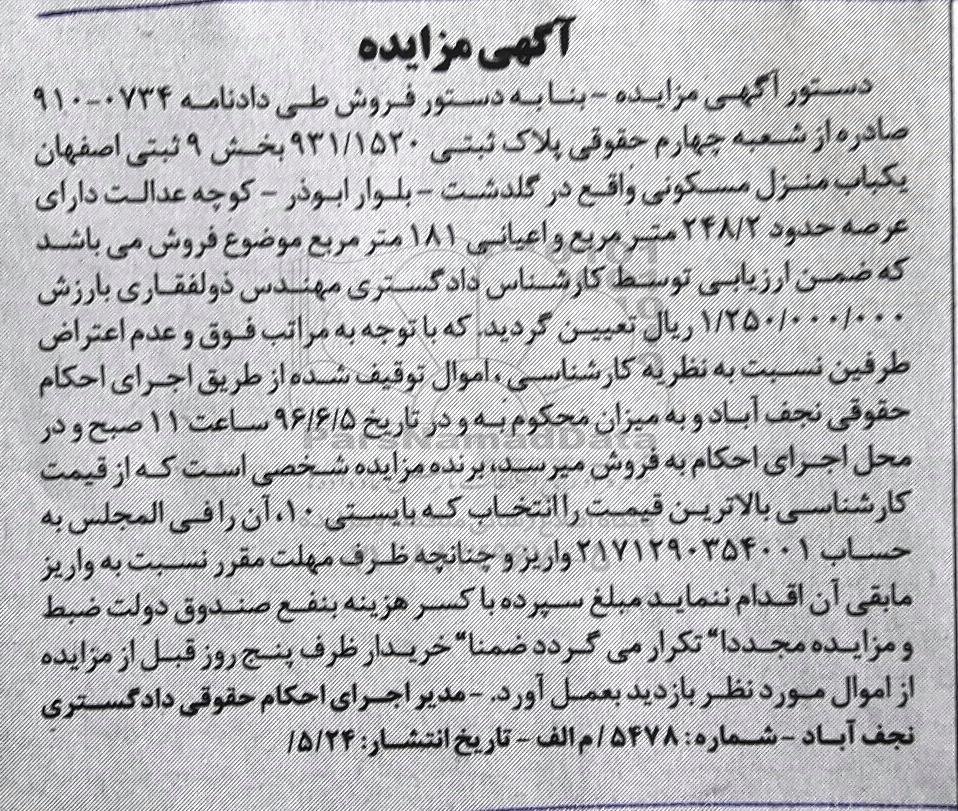 آگهی مزایده
دستور آگهی مزایده - بنا به دستور فروش طی دادنامه ۰۷۳۴-۹۱۰
صادره از شعبه چهارم حقوقی پلاک ثبتی ۹۳۱/۱۵۲۰ بخش ۹ ثبتی اصفهان
یکباب منزل مسکونی واقع در گلدشت - بلوار ابوذر - کوچه عدالت دارای
عرصه حدود ۲۴۸/۲ متر مربع و اعیانی ۱۸۱ متر مربع موضوع فروش می باشد
که ضمن ارزیابی توسط کارشناس دادگستری مهندس ذولفقاری بارزش
۱/۲۵۰/۰۰۰/۰۰۰ ریال تعیین گردید. که با توجه به مراتب فوق و عدم اعتراض
طرفین نسبت به نظریه کارشناسی، اموال توقیف شده از طریق اجرای احکام
حقوقی نجف آباد و به میزان محکوم به و در تاریخ ۹۶/۶/۵ ساعت ۱۱ صبح و در
محل اجرای احکام به فروش میرسد، برنده مزایده شخصی است که از قیمت
کارشناسی بالاترین قیمت را انتخاب که بایستی ۱۰، آن را فی المجلس به
حساب ۲۱۷۱۲۹۰۳۵۴۰۰۱ واریز و چنانچه ظرف مهلت مقرر نسبت به واریز
مابقی آن اقدام ننماید مبلغ سپرده با کسر هزینه بنفع صندوق دولت ضبط
و مزایده مجددا“ تکرار می گردد ضمنا“ خریدار ظرف پنج روز قبل از مزایده
از اموال مورد نظر بازدید بعمل آورد. - مدیر اجرای احکام حقوقی دادگستری
نجف آباد - شماره: ۵۴۷۸ / م الف - تاریخ انتشار: ۵/۲۴/
ParsNamadData